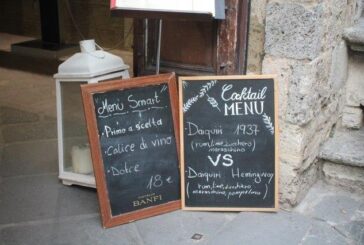 "Menù Smart"
• Primo a scelta
• Calice di vino
• Dolce
18 €
BANFI
Cocktail
MENU
• Daiquiri 1937
(rum, lime, zucchero
maraschino)
VS
• Daiquiri Hemingway
(rum, lime, zucchero
maraschino, pompelmo)